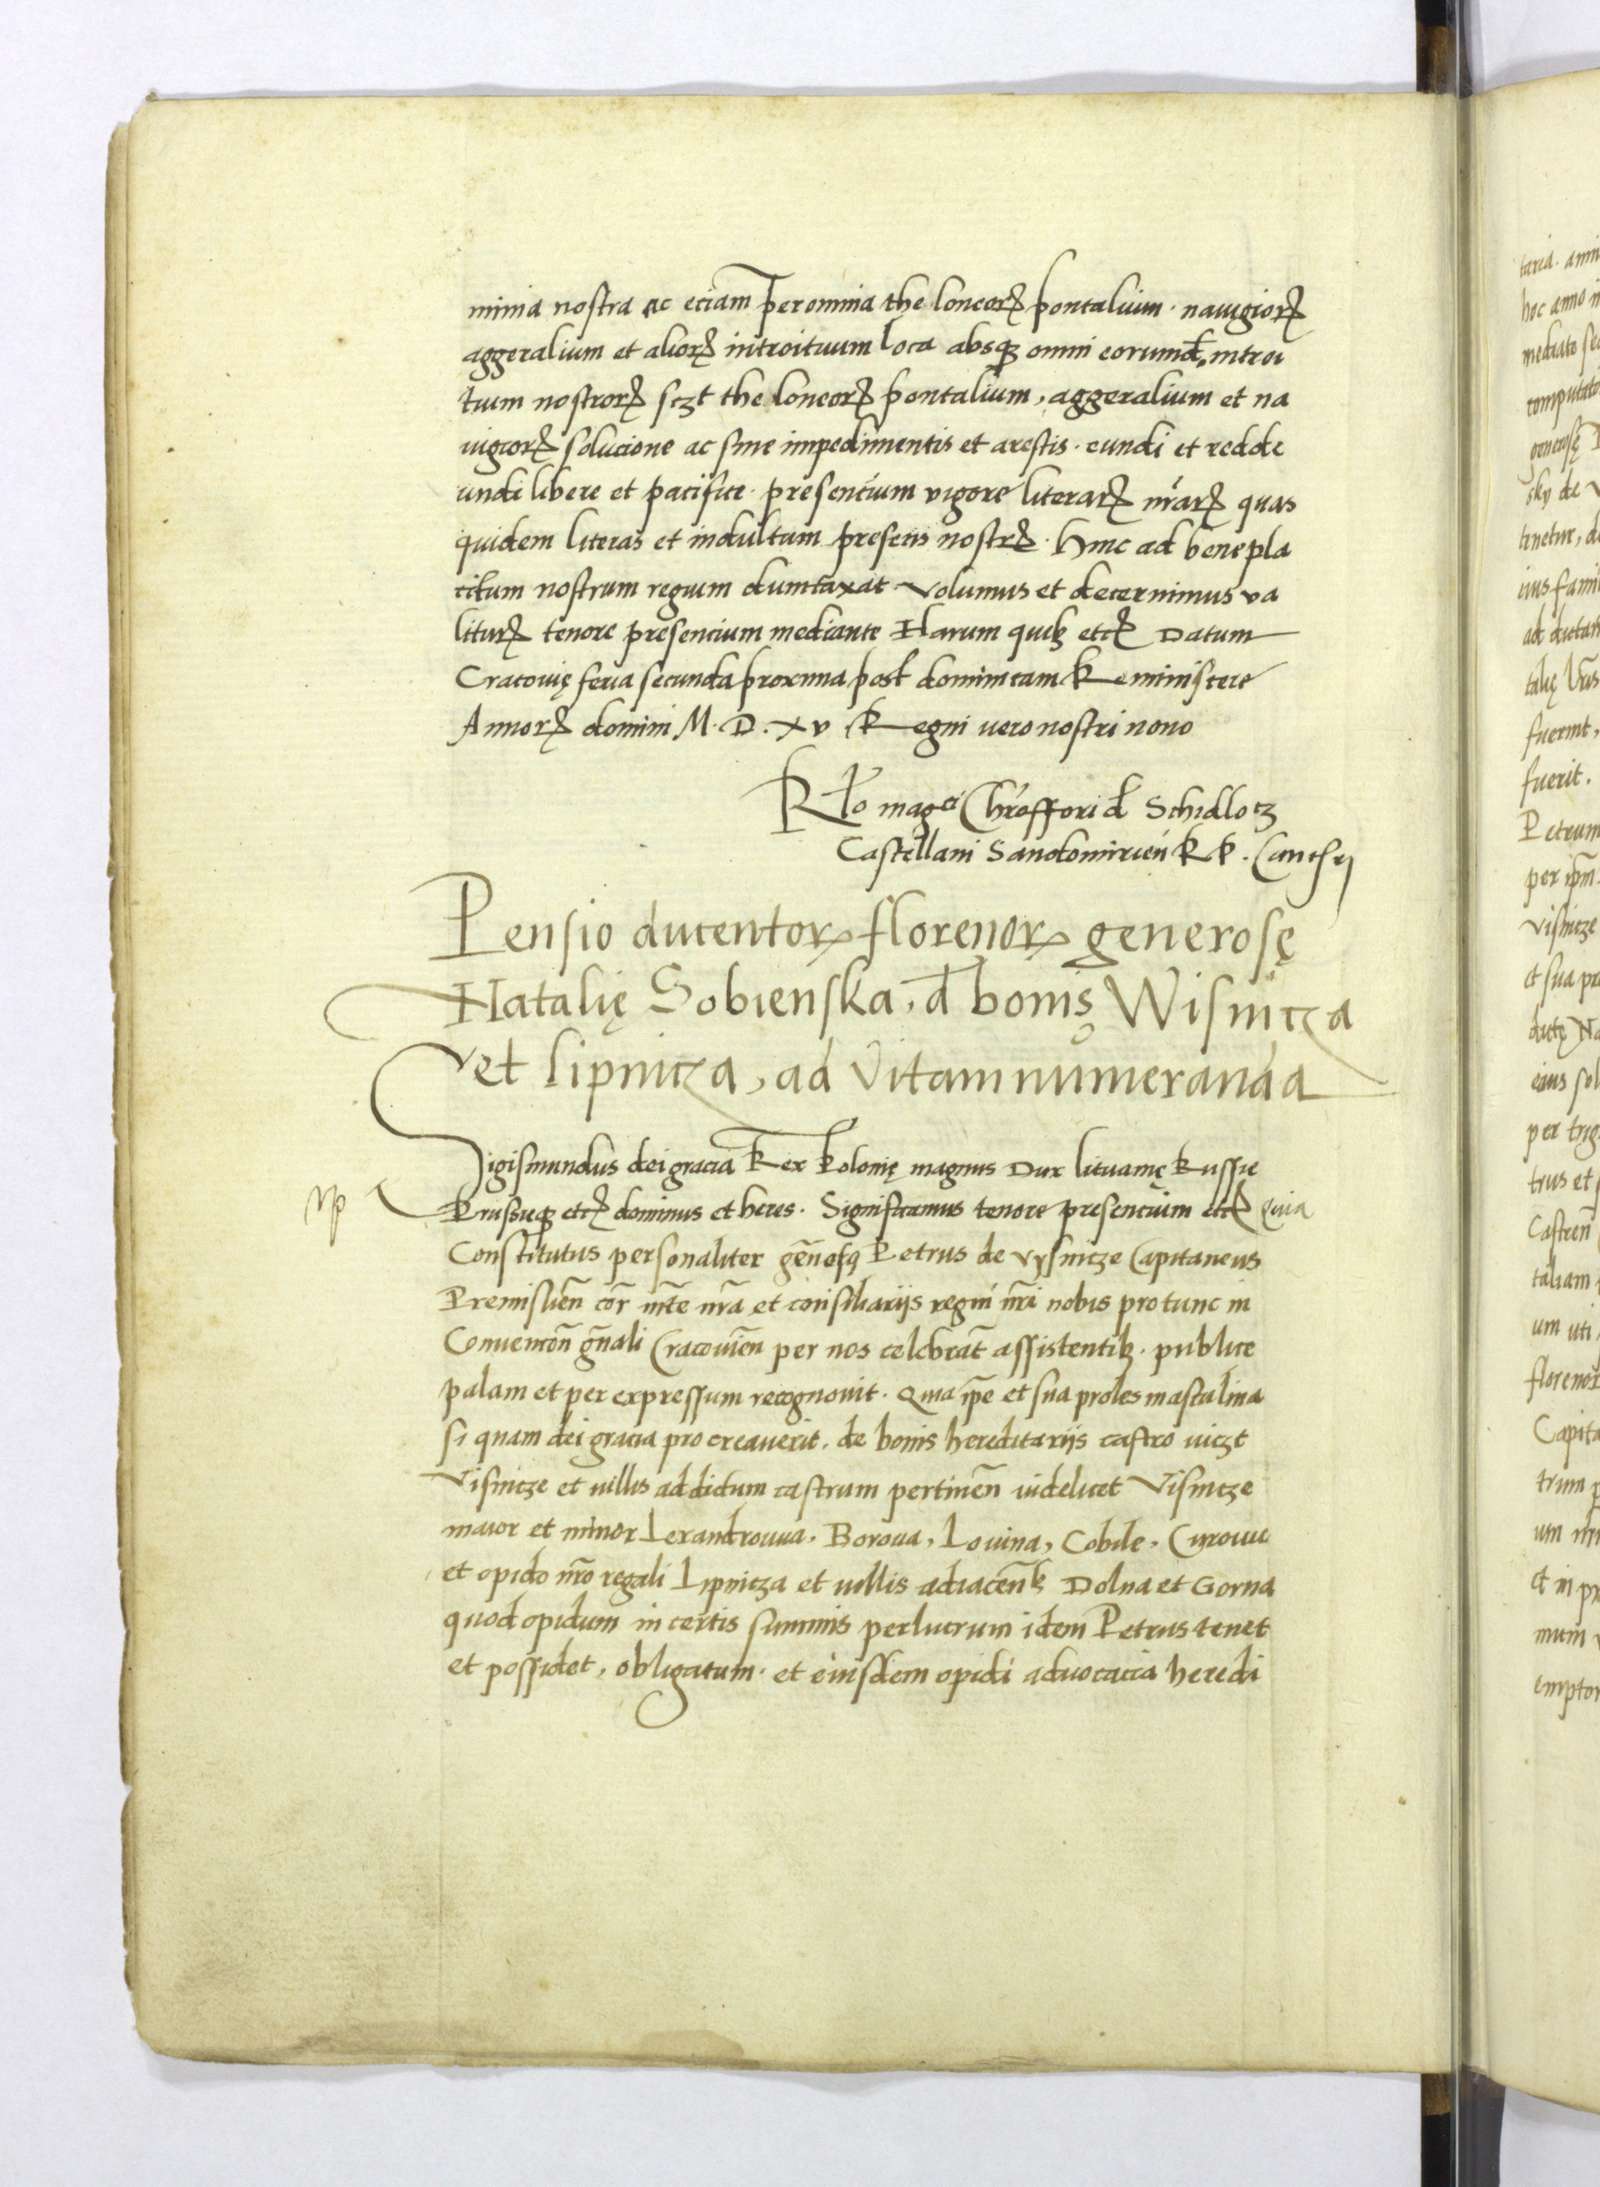 minia nostra ac eciam per omnia theloneorꝝ pontalium · nauigiorꝝ
aggeralium et aliorꝝ introituum loca absqꝫ omni eorumd. introi
tuum nostrorꝝ sczt theloneorꝝ pontalium, aggeralium et na
uigiorꝝ solucione ac sine impedimentis et arestis · eundi et redde
undi libere et pacifice · presencium vigore literarꝝ nr̄arꝝ quas
quidem literas et indultum presens nostrꝝ · hinc ad benepla
citum nostrum regium dumtaxat volumus et decernimus va
liturꝝ tenore presencium mediante Harum quibꝫ etcꝝ Datum
Cracouię feria secunda proxima post dominicam Reminiscere
Annorꝝ domini M · D · xv Regni vero nostri nono
Rlo magci Chr̄offori d Schidlocz
Castellani Sandomirien̄ R P · Canc
Pensio ducentorꝝ florenorꝝ generosę
Natalię Sobienska, d bonis Wisnicza
et lipnicza, ad vitam numeranda
Sigismundus dei gracia Rex Polonię magnus Dux lituanię Russie
Prussieqꝫ etcꝝ dominus et heres · Significamus tenore presencium etcꝝ Quia
Constitutus personaliter gēnosꝰ Petrus de vysnicze Capitaneus
Premislien̄ cor̄ mt̄e nr̄a et consiliarijs regni nr̄i nobis pro tunc in
Conuencōn gn̄ali Cracouien̄ per nos celebrat̄ assistentibꝫ · publice
palam et per expressum recognouit · Quia ip̄e et sua proles masculina
si quam dei gracia procreauerit · de bonis hereditarijs castro viczt
Visnicze et villis ad dictum castrum pertinen̄ videlicet Visnicze
maior et minor Lexandrouua · Boroua, Louina, Cobile, Cyrouue
et opido nr̄o regali Lipnicza et villis adiacen̄bꝫ Dolna et Gorna
quod opidum in certis summis per lucrum idem Petrus tenet
et possidet, obligatum · et eiusdem opidi aduocacia heredi